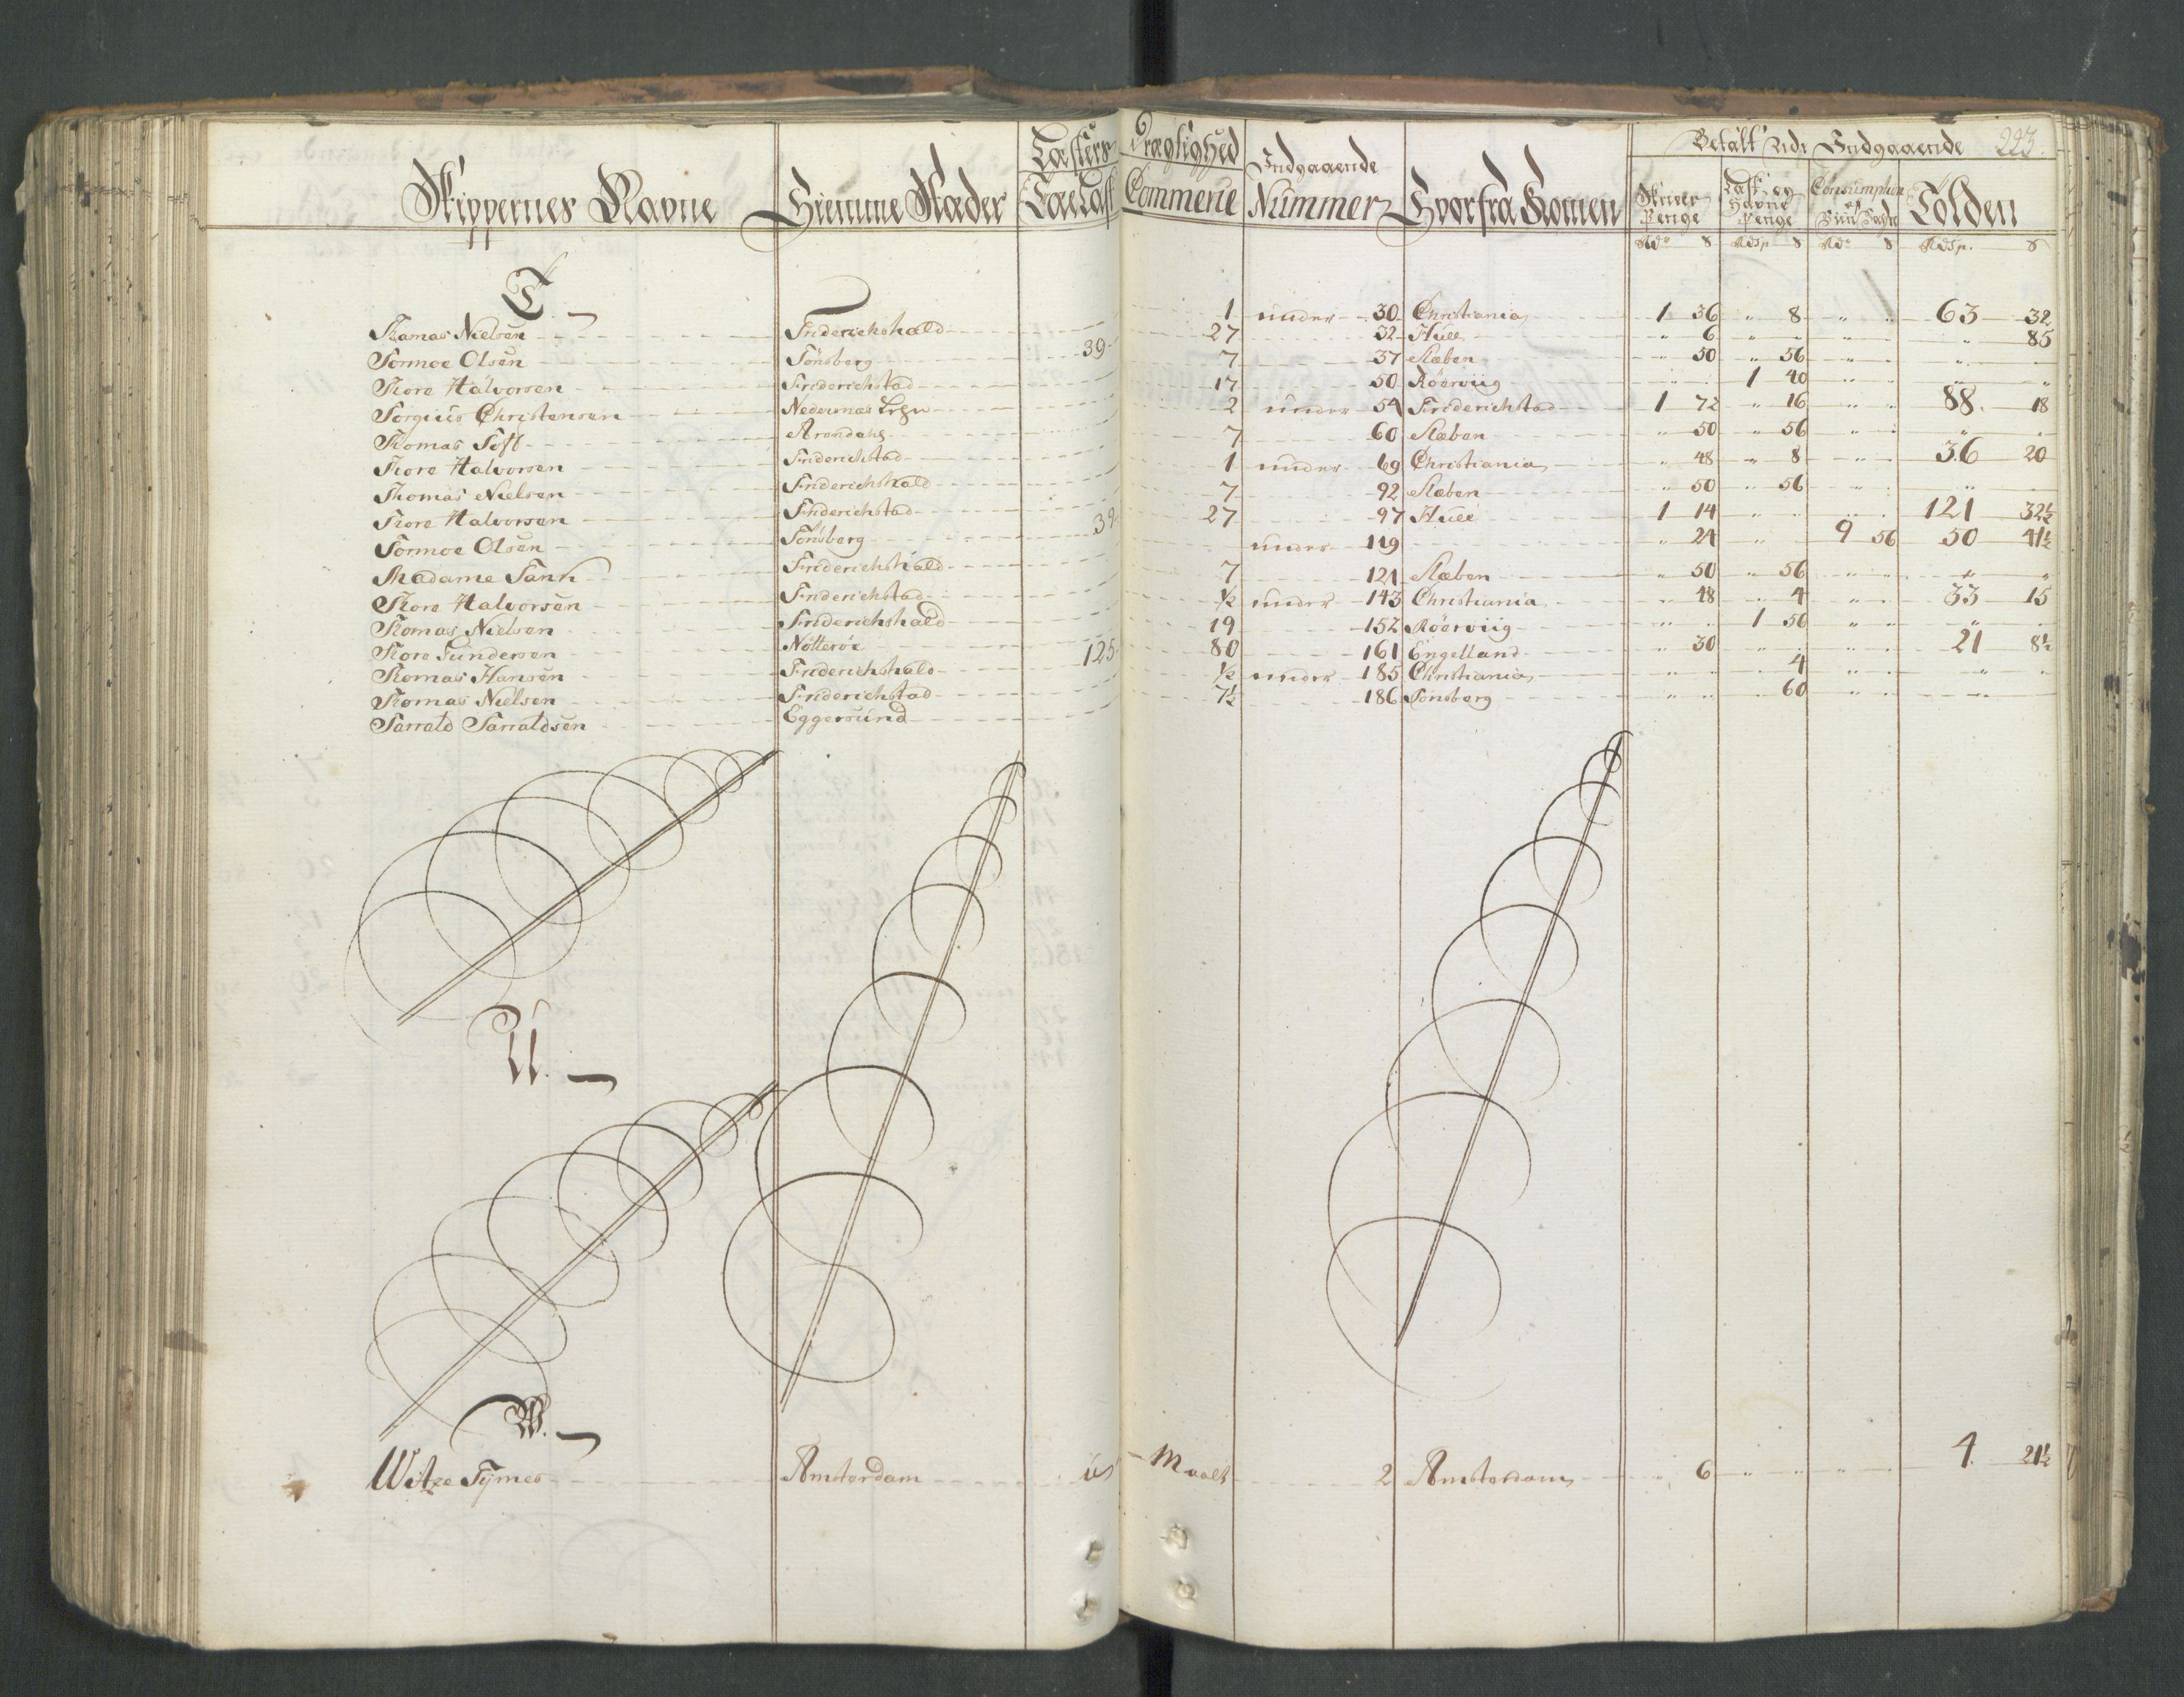 Skippernes Navne Hiemme Stæder Læsters Dragtighed Indgaaende Hvorfra Komen Betalt ved Indgaaende 223.
Træelast Commerce Nummer Skriver Penge Last og Havne Penge Consumption Tolden
Rdr ß Rdsp ß Rdr ß Rdsp. ß
T.
Thomas Nielsen Friderichshald 1 under 30 Christiania 1 36 " 8 " " 63 32
Tormoe Olsen Tönsberg 39 27 32 Hull " 6 " " " " " 85
Thore Halvorsen Friderichstad 7 37 Stæben " 50 " 56 " " " "
Torgius Christensen Nedernæs Lehn 17 50 Röerviig " " 1 40 " " " "
Thomas Toft Arendahl 2 under 54 Friderichstad 1 72 " 16 " " 88 18
Thore Halvorsen Friderichstad 7 60 Stæben " 50 " 56 " " " "
Thomas Nielsen Friderichshald 1 under 69 Christiania " 48 " 8 " " 36 20
Thore Halvorsen Friderichstad 7 92 Stæben " 50 " 56 " " " "
Tormoe Olsen Tönsberg 39 27 97 Hull 1 14 " " " " 121 32½
Madame Tank Friderichshald under 119 " 24 " 9 56 50 41½
Thore Halvorsen Friderichstad 7 121 Stæben " 50 " 56 " " " "
Thomas Nielsen Friderichshald ½ under 143 Christiania " 48 " 4 " " 33 15
Thore Gundersen Nötteröe 19 152 Röerviig " " 1 56 " " " "
Thomas Hansen Friderichshald 125 80 161 Engelland " 30 " " " " 21 8½
Thomas Nielsen Friderichstad ½ under 185 Christiania " " " 4 " " " "
Tarrald Tarraldsen Eggersund 7½ 186 Tönsberg " " " 60 " " " "
U.
W.
Witze Tÿmes Amsterdam u Maalt 2 Amsterdam " 6 " " " " 4 21½